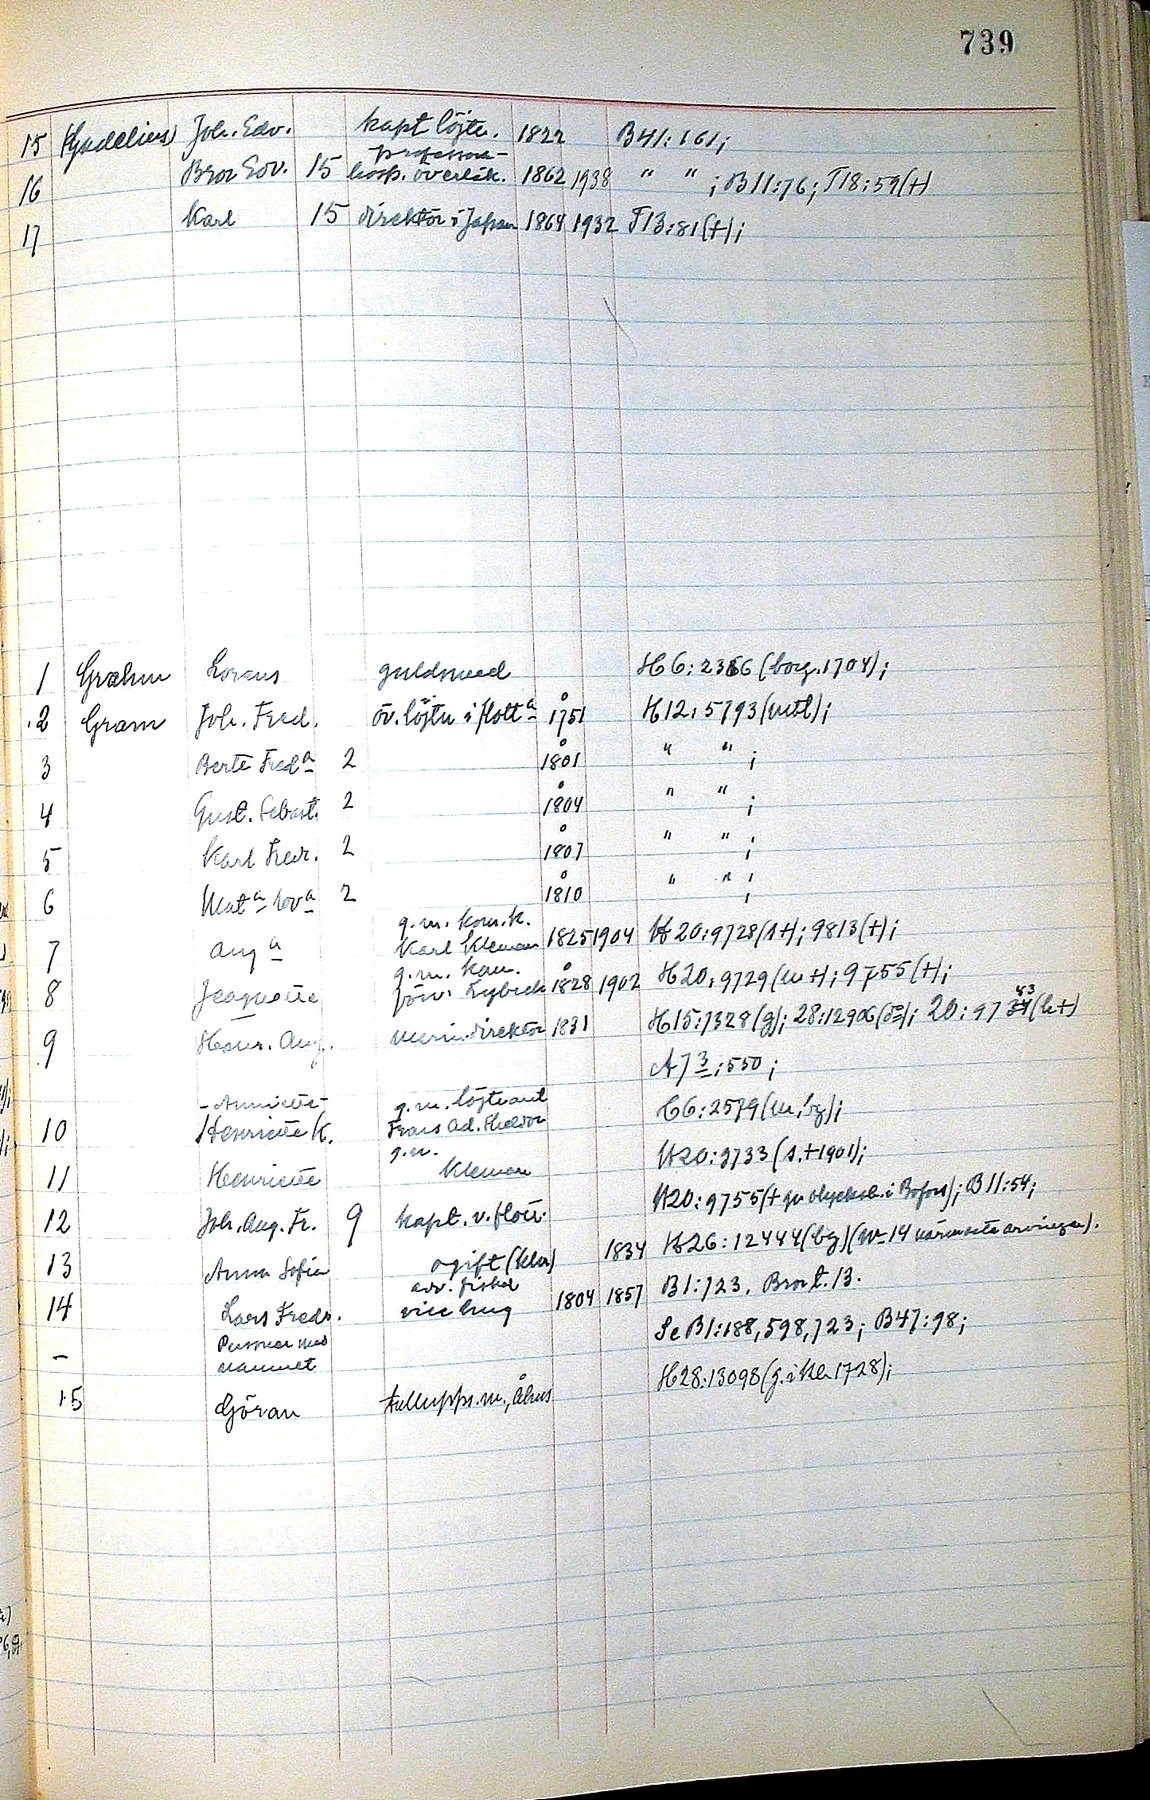 739
15 Joh. Edv. kapt löjtn. 1822 B41:161;
professor-
16 Bror Edv. 15 hosp. överläk. 1862 1938 " " ; B11:76; T18:59(+)
17 Karl 15 direktör i Japan 1864 1932 T13:81(+);
1 Græhm Lorens guldsmed H6:2366 (borg. 1704);
2 Gram Joh. Fred. öv. löjtn i flottª 1751 H12:5793 (mtl);
3 Berte Fredª 2 1801 " " ;
4 Gust. Sebast. 2 1804 " " ;
5 Karl Fedr. 2 1807 " " ;
6 Matª Lovª 2 1810 " " ;
g. m. kom.k.
7 Augª Karl Kleman 1825 1904 H20:9728(1+); 9813(+);
g. m. kam.
8 Jeaquette Lybeck 1828 1902 H20:9729(m+); 9755(+);
9 Henr. Aug. direktör 1831 H15:7328(g); 28:12906; 20:9743(h+)
A7 3:550;
-Annette- g. m. löjtnant
10 Henriette K. Frans Ad. H6:2579(m, bg);
g. m.
11 Henriette Kleman H20:9733 (1.+1901);
12 Joh. Aug. Fr. 9 kapt. v. flott. H20:9755(+ gm olycksh. i Bofors); B11:54;
13 Anna Sofia ogift (Kla) 1834 H26:12444(bg)(m=14 närmaste arvingar).
adv. fiskal
14 Lars Fredr. vice 1804 1857 B1:723. Bror t. 13.
- Personer med
namnet Se B1:188, 598, 723; B47:98;
15 Göran tullupps.m., Åhus H28:13098(g. i Kla 1728);